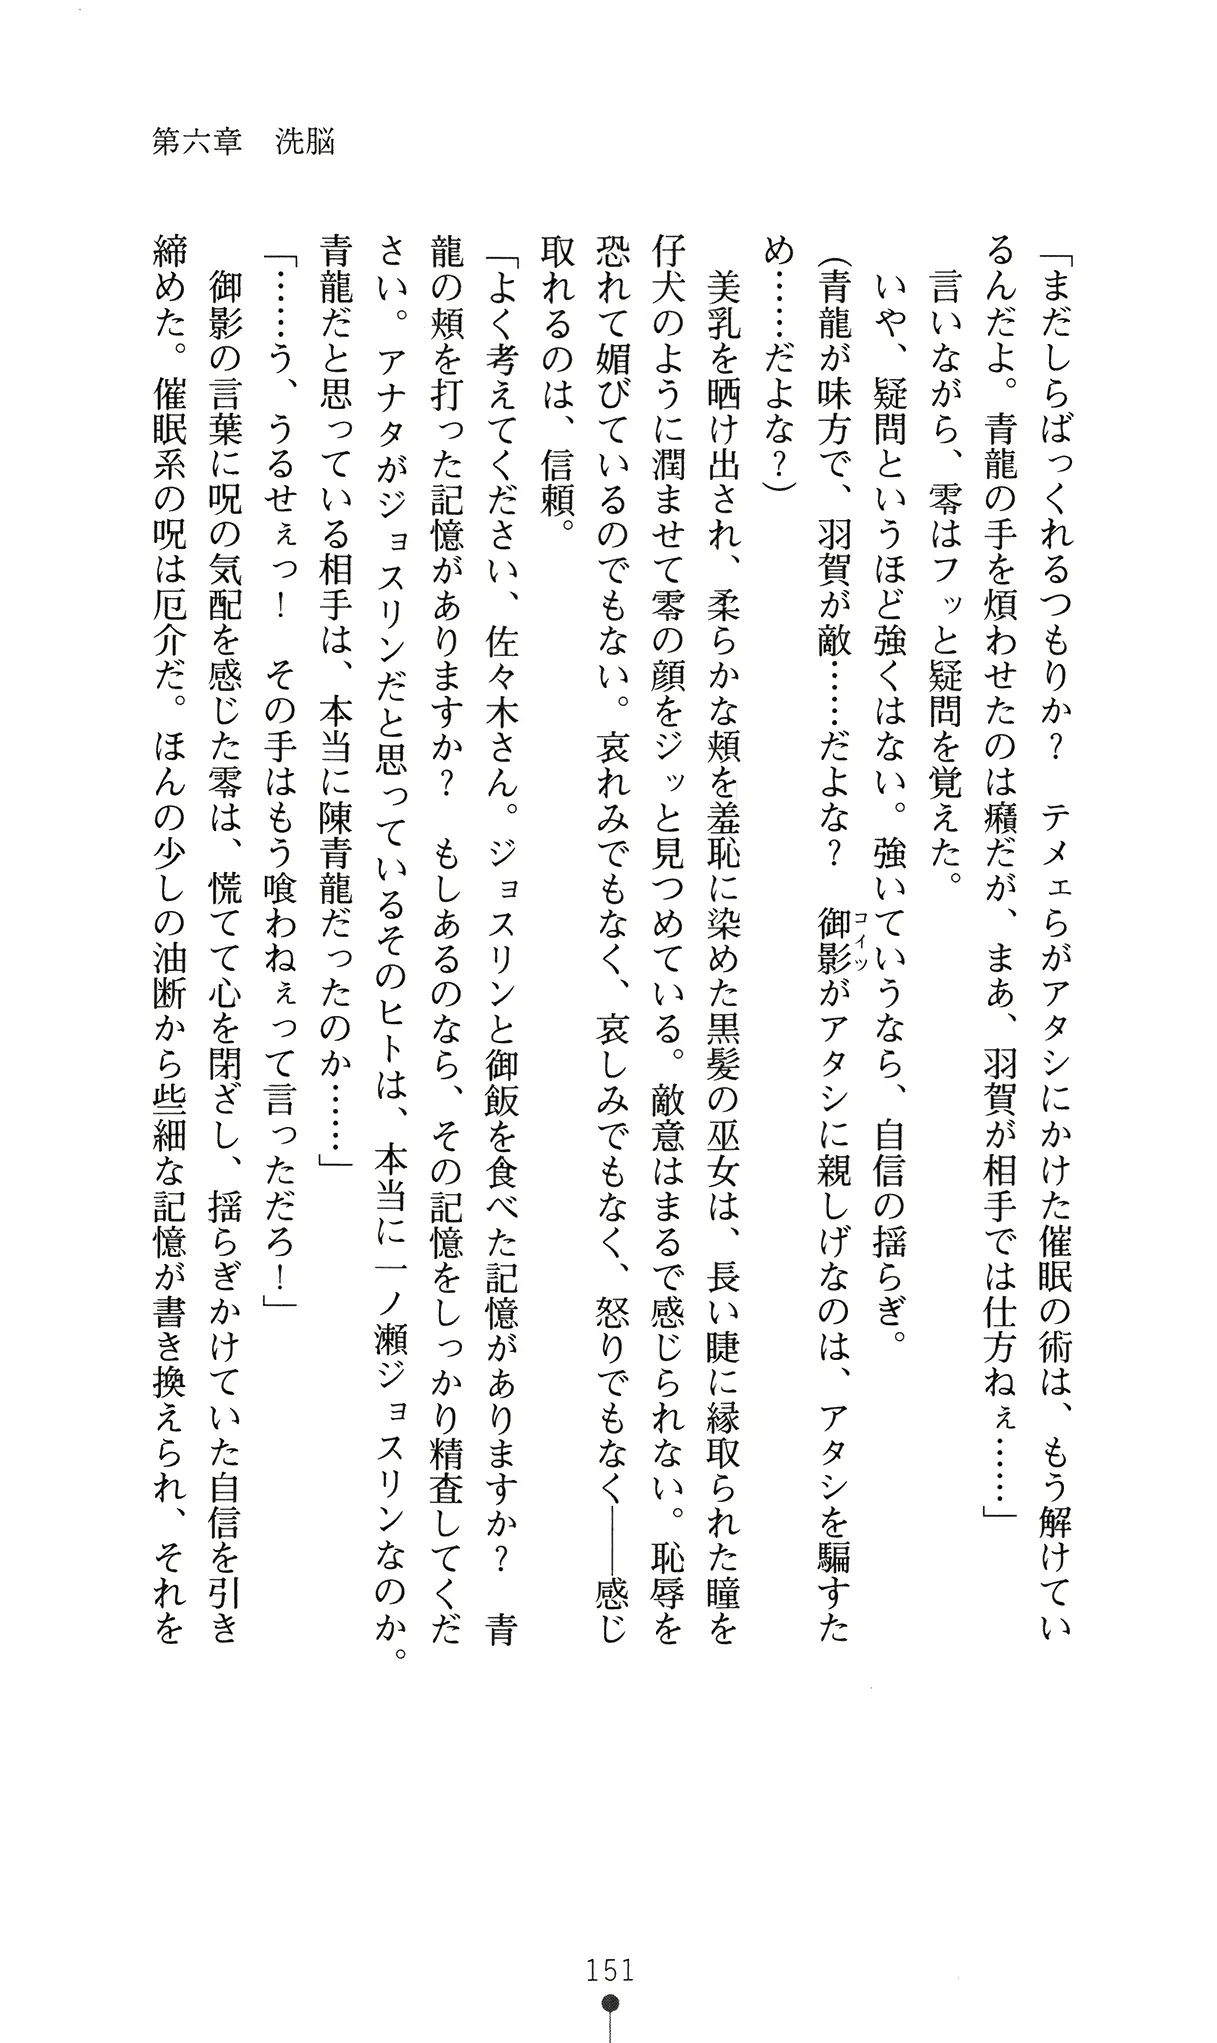 第六章　洗脳
「まだしらばっくれるつもりか？　テメェらがアタシにかけた催眠の術は、もう解けてい
るんだよ。青龍の手を煩わせたのは癪だが、まあ、羽賀が相手では仕方ねぇ……」
　言いながら、零はフッと疑問を覚えた。
　いや、疑問というほど強くはない。強いていうなら、自信の揺らぎ。
（青龍が味方で、羽賀が敵……だよな？　御影コイツがアタシに親しげなのは、アタシを騙すた
め……だよな？）
　美乳を晒け出され、柔らかな頬を羞恥に染めた黒髪の巫女は、長い睫に縁取られた瞳を
仔犬のように潤ませて零の顔をジッと見つめている。敵意はまるで感じられない。恥辱を
恐れて媚びているのでもない。哀れみでもなく、哀しみでもなく、怒りでもなく――感じ
取れるのは、信頼。
「よく考えてください、佐々木さん。ジョスリンと御飯を食べた記憶がありますか？　青
龍の頬を打った記憶がありますか？　もしあるのなら、その記憶をしっかり精査してくだ
さい。アナタがジョスリンだと思っているそのヒトは、本当に一ノ瀬ジョスリンなのか。
青龍だと思っている相手は、本当に陳青龍だったのか……」
「……う、うるせぇっ！　その手はもう喰わねぇって言っただろ！」
　御影の言葉に呪の気配を感じた零は、慌てて心を閉ざし、揺らぎかけていた自信を引き
締めた。催眠系の呪は厄介だ。ほんの少しの油断から些細な記憶が書き換えられ、それを
151